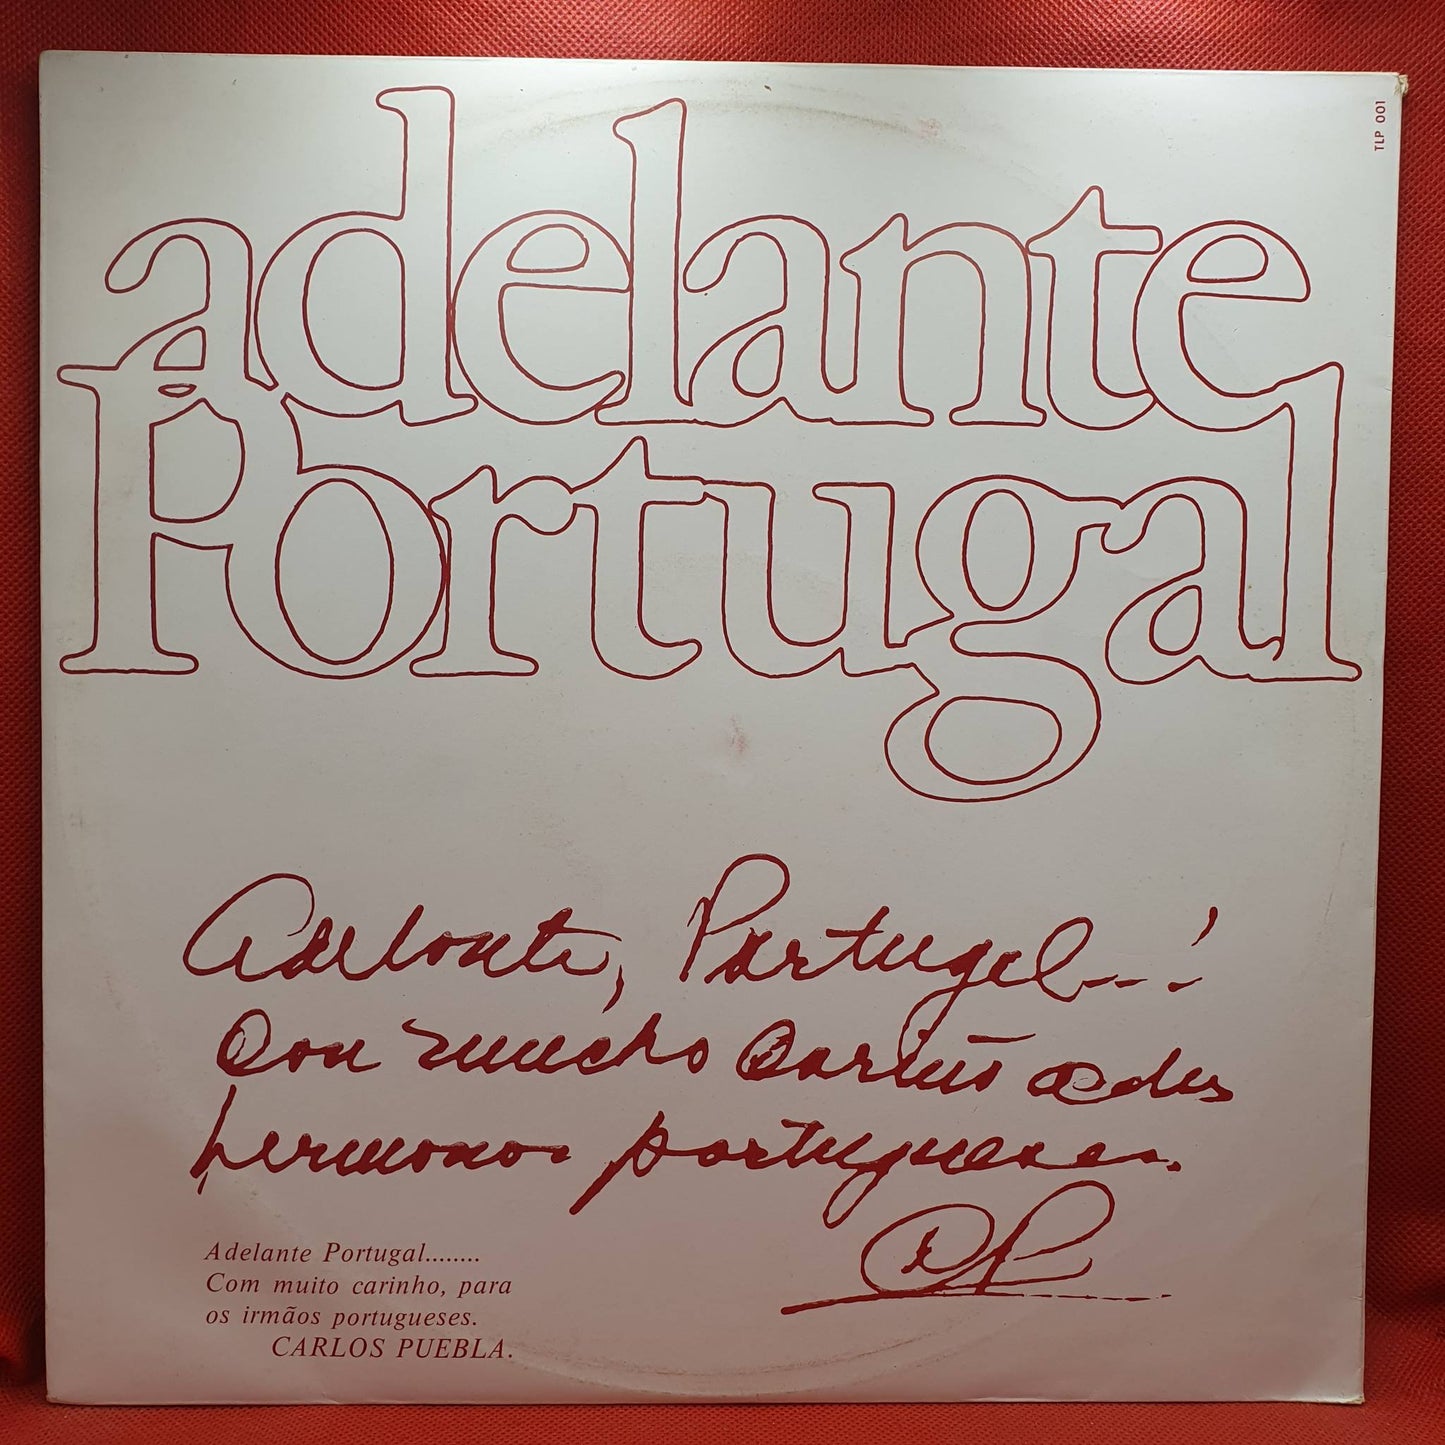 TLP 001
adelante
Portugal
Adelante, Portugal...!
Con mucho cariño a los
hermanos portugueses.
CP
Adelante Portugal........
Com muito carinho, para
os irmãos portugueses.
CARLOS PUEBLA.